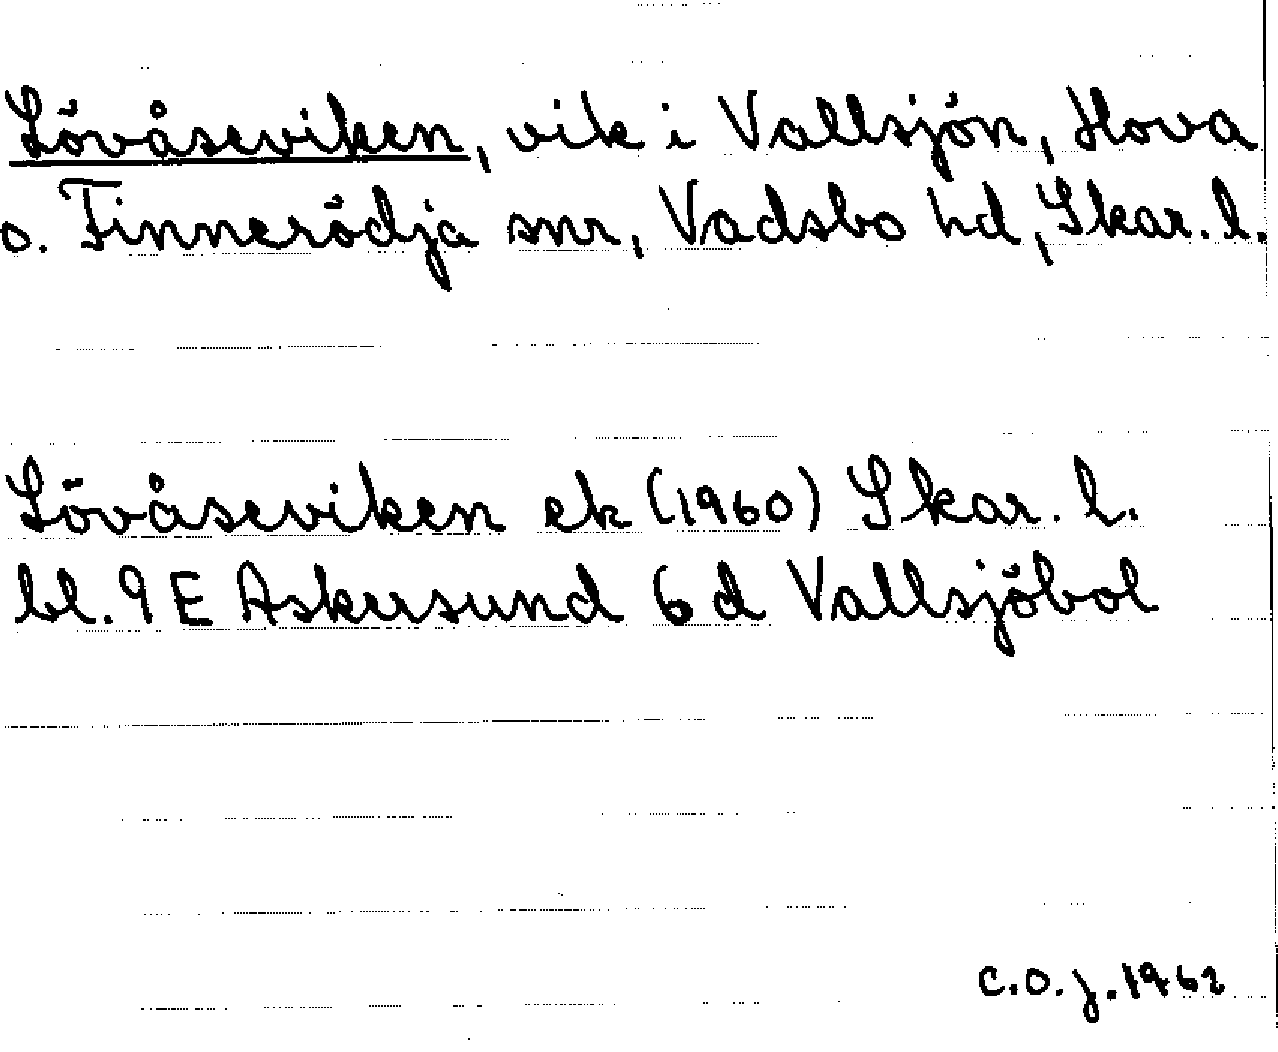 Lövåseviken, vik i Vallsjön, Hova
o. Finnerödja snr, Vadsbo hd, Skar. l.
Lövåseviken ek (1960) Skar. l.
bl. 9 E Askersund 6 d Vallsjöbol
C.O.J. 1962